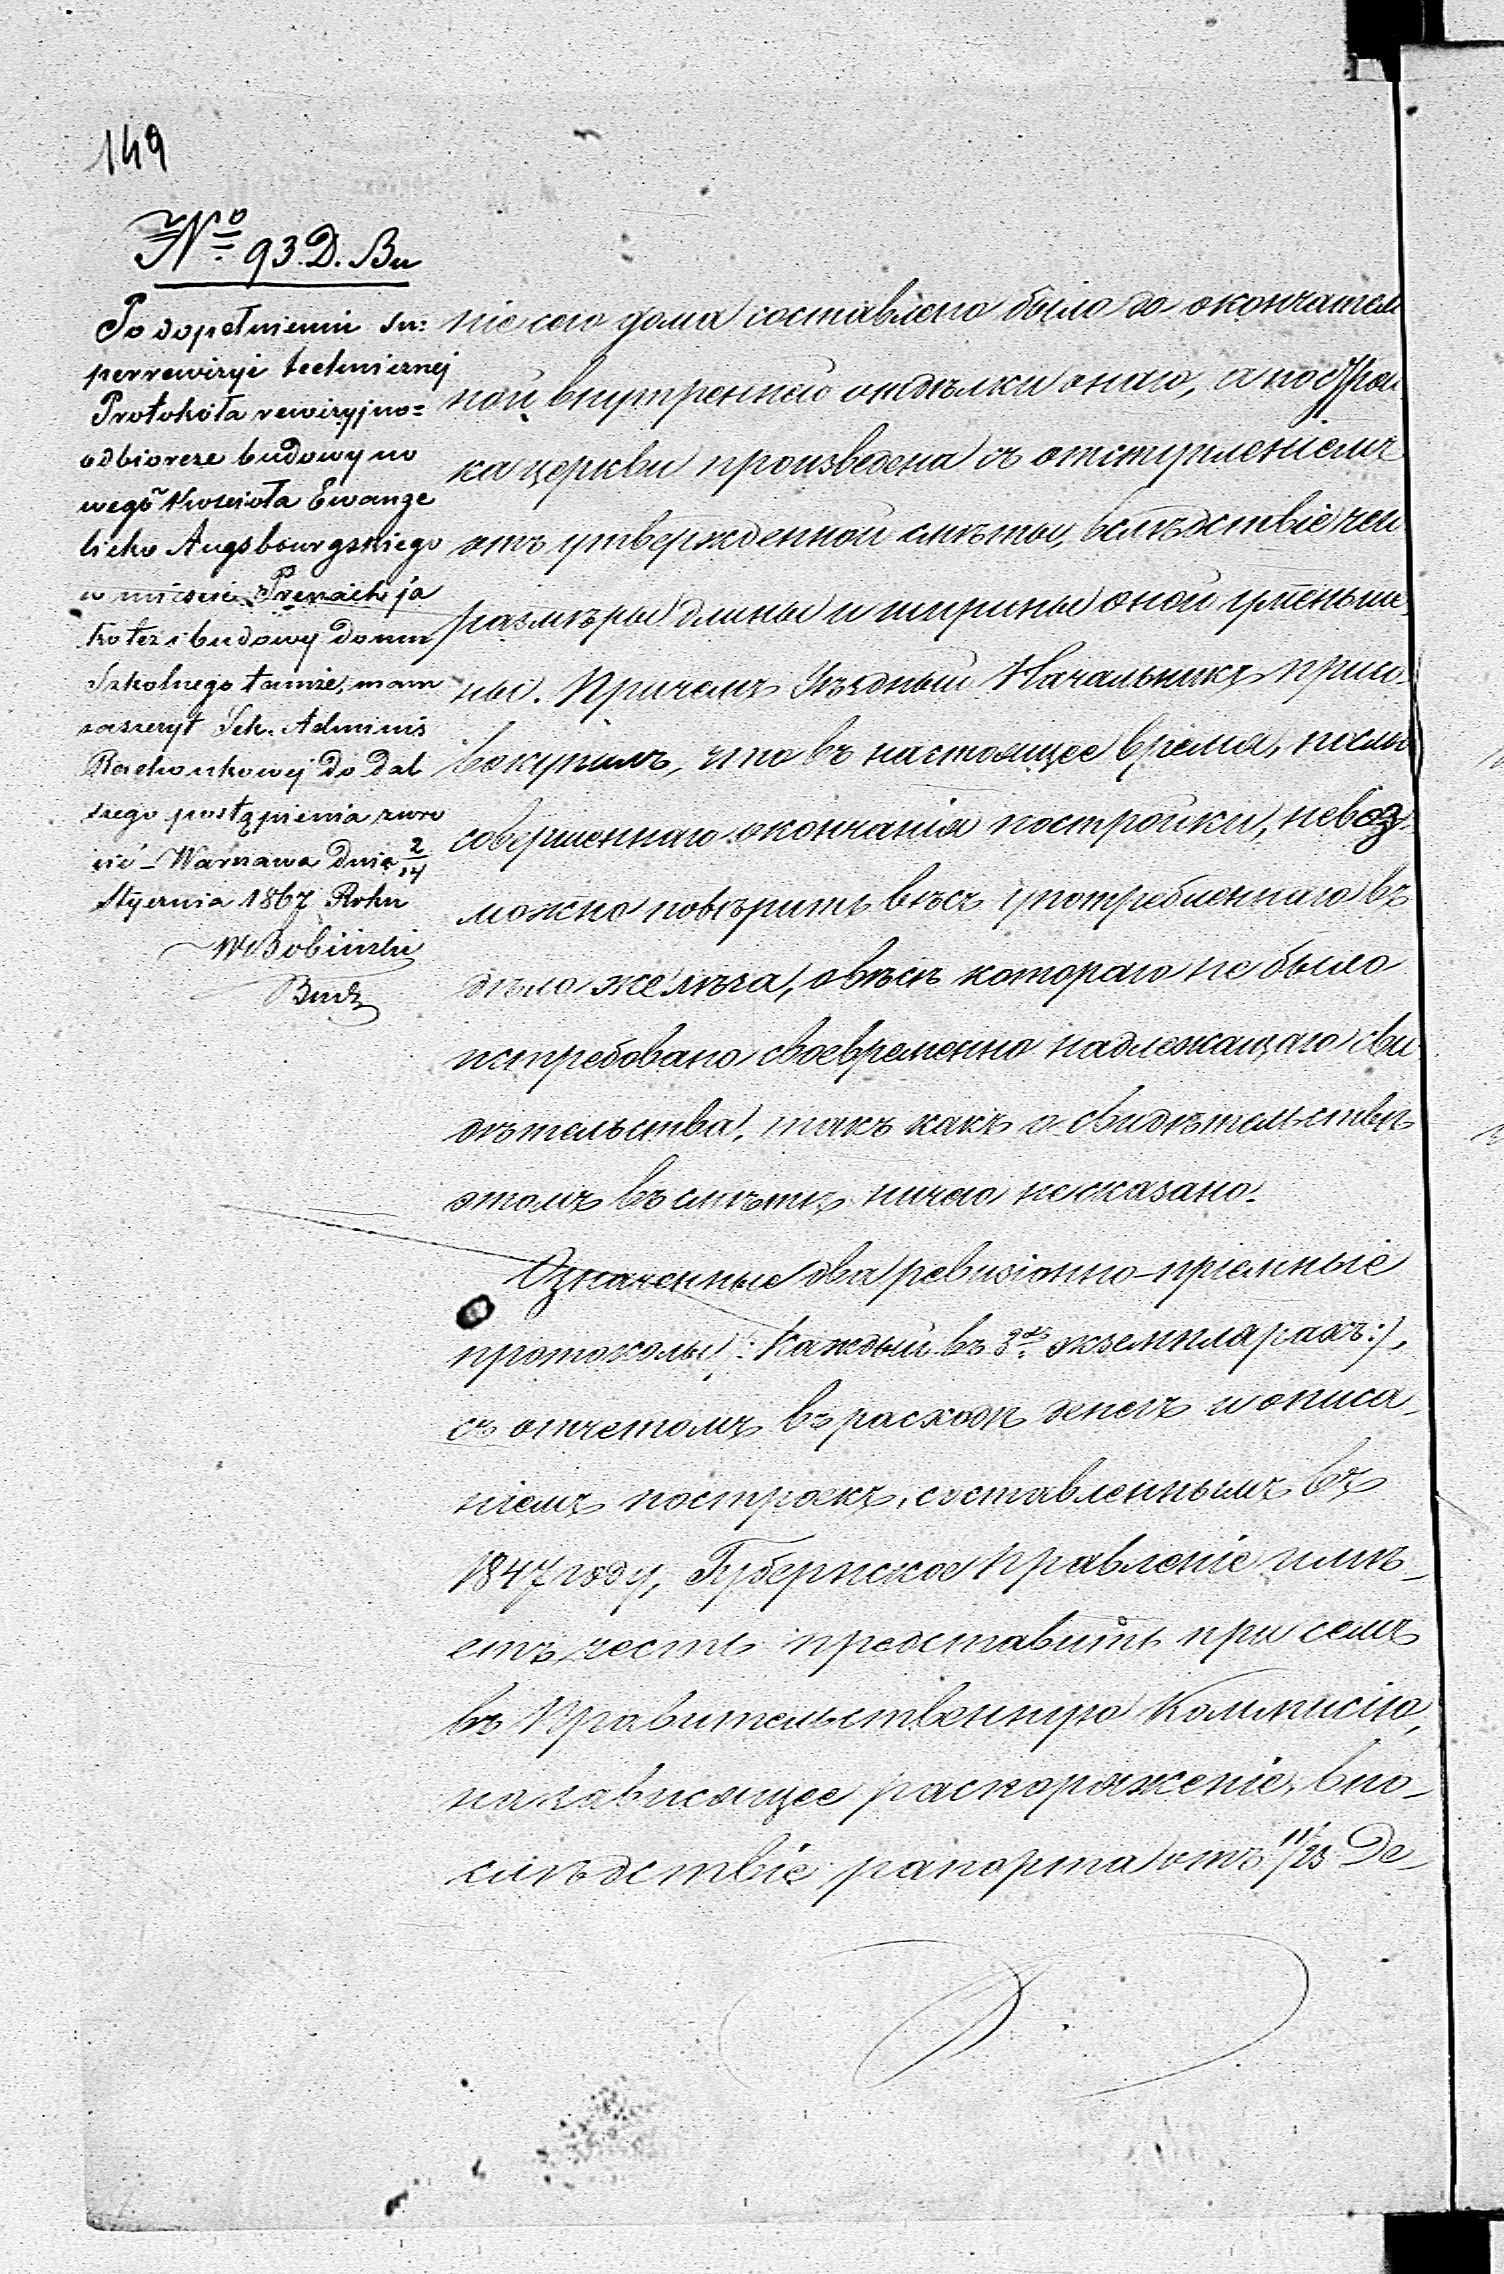 149
№ 93. D. Bu
Po dopełnieniu su=
perrewizyi technicznej
Protokóła rewizyjno=
odbiorcze budowy no
wego Kościoła Ewange
licko Augsbourgskiego
w mieście Prenach ja
ko też i budowy domu
Szkolnego tamże, mam
zaszczyt Sek. Adminis
Rachunkowej do dal
szego postąpienia zwró
cić – Warszawa dnia 2/14
Stycznia 1867 Roku
Budz
ніе сего дома составлено было до окончатель
ной внутренней отдѣлки онаго, а построй
ка церкви произведена съ отступленіемъ
отъ утвержденной смѣты, вслѣдствіе чего
размѣры длины и ширины оной уменьше
ны. Причемъ Уѣздный Начальникъ присо
вокупилъ, что въ настоящее время, послѣ
совершеннаго окончанія постройки, невоз
можно повѣрить вѣсъ употребленнаго въ
дѣло желѣза, о вѣсѣ котораго не было
истребовано своевременно надлежащаго сви
дѣтельства, такъ какъ о свидѣтельствѣ
этомъ въ смѣтѣ ничего несказано.
Означенные два ревизіонно-пріемные
протоколы /: каждый въ 3хъ экземплярахъ :/,
съ отчетомъ въ расходѣ денегъ и описа
ніемъ построекъ, составленнымъ въ
1847 году, Губернское Правленіе имѣ-
етъ честь представить при семъ
въ Правительственную Коммисію,
на зависящее распоряженіе, впо-
слѣдствіе рапорта отъ 11/23 Де-